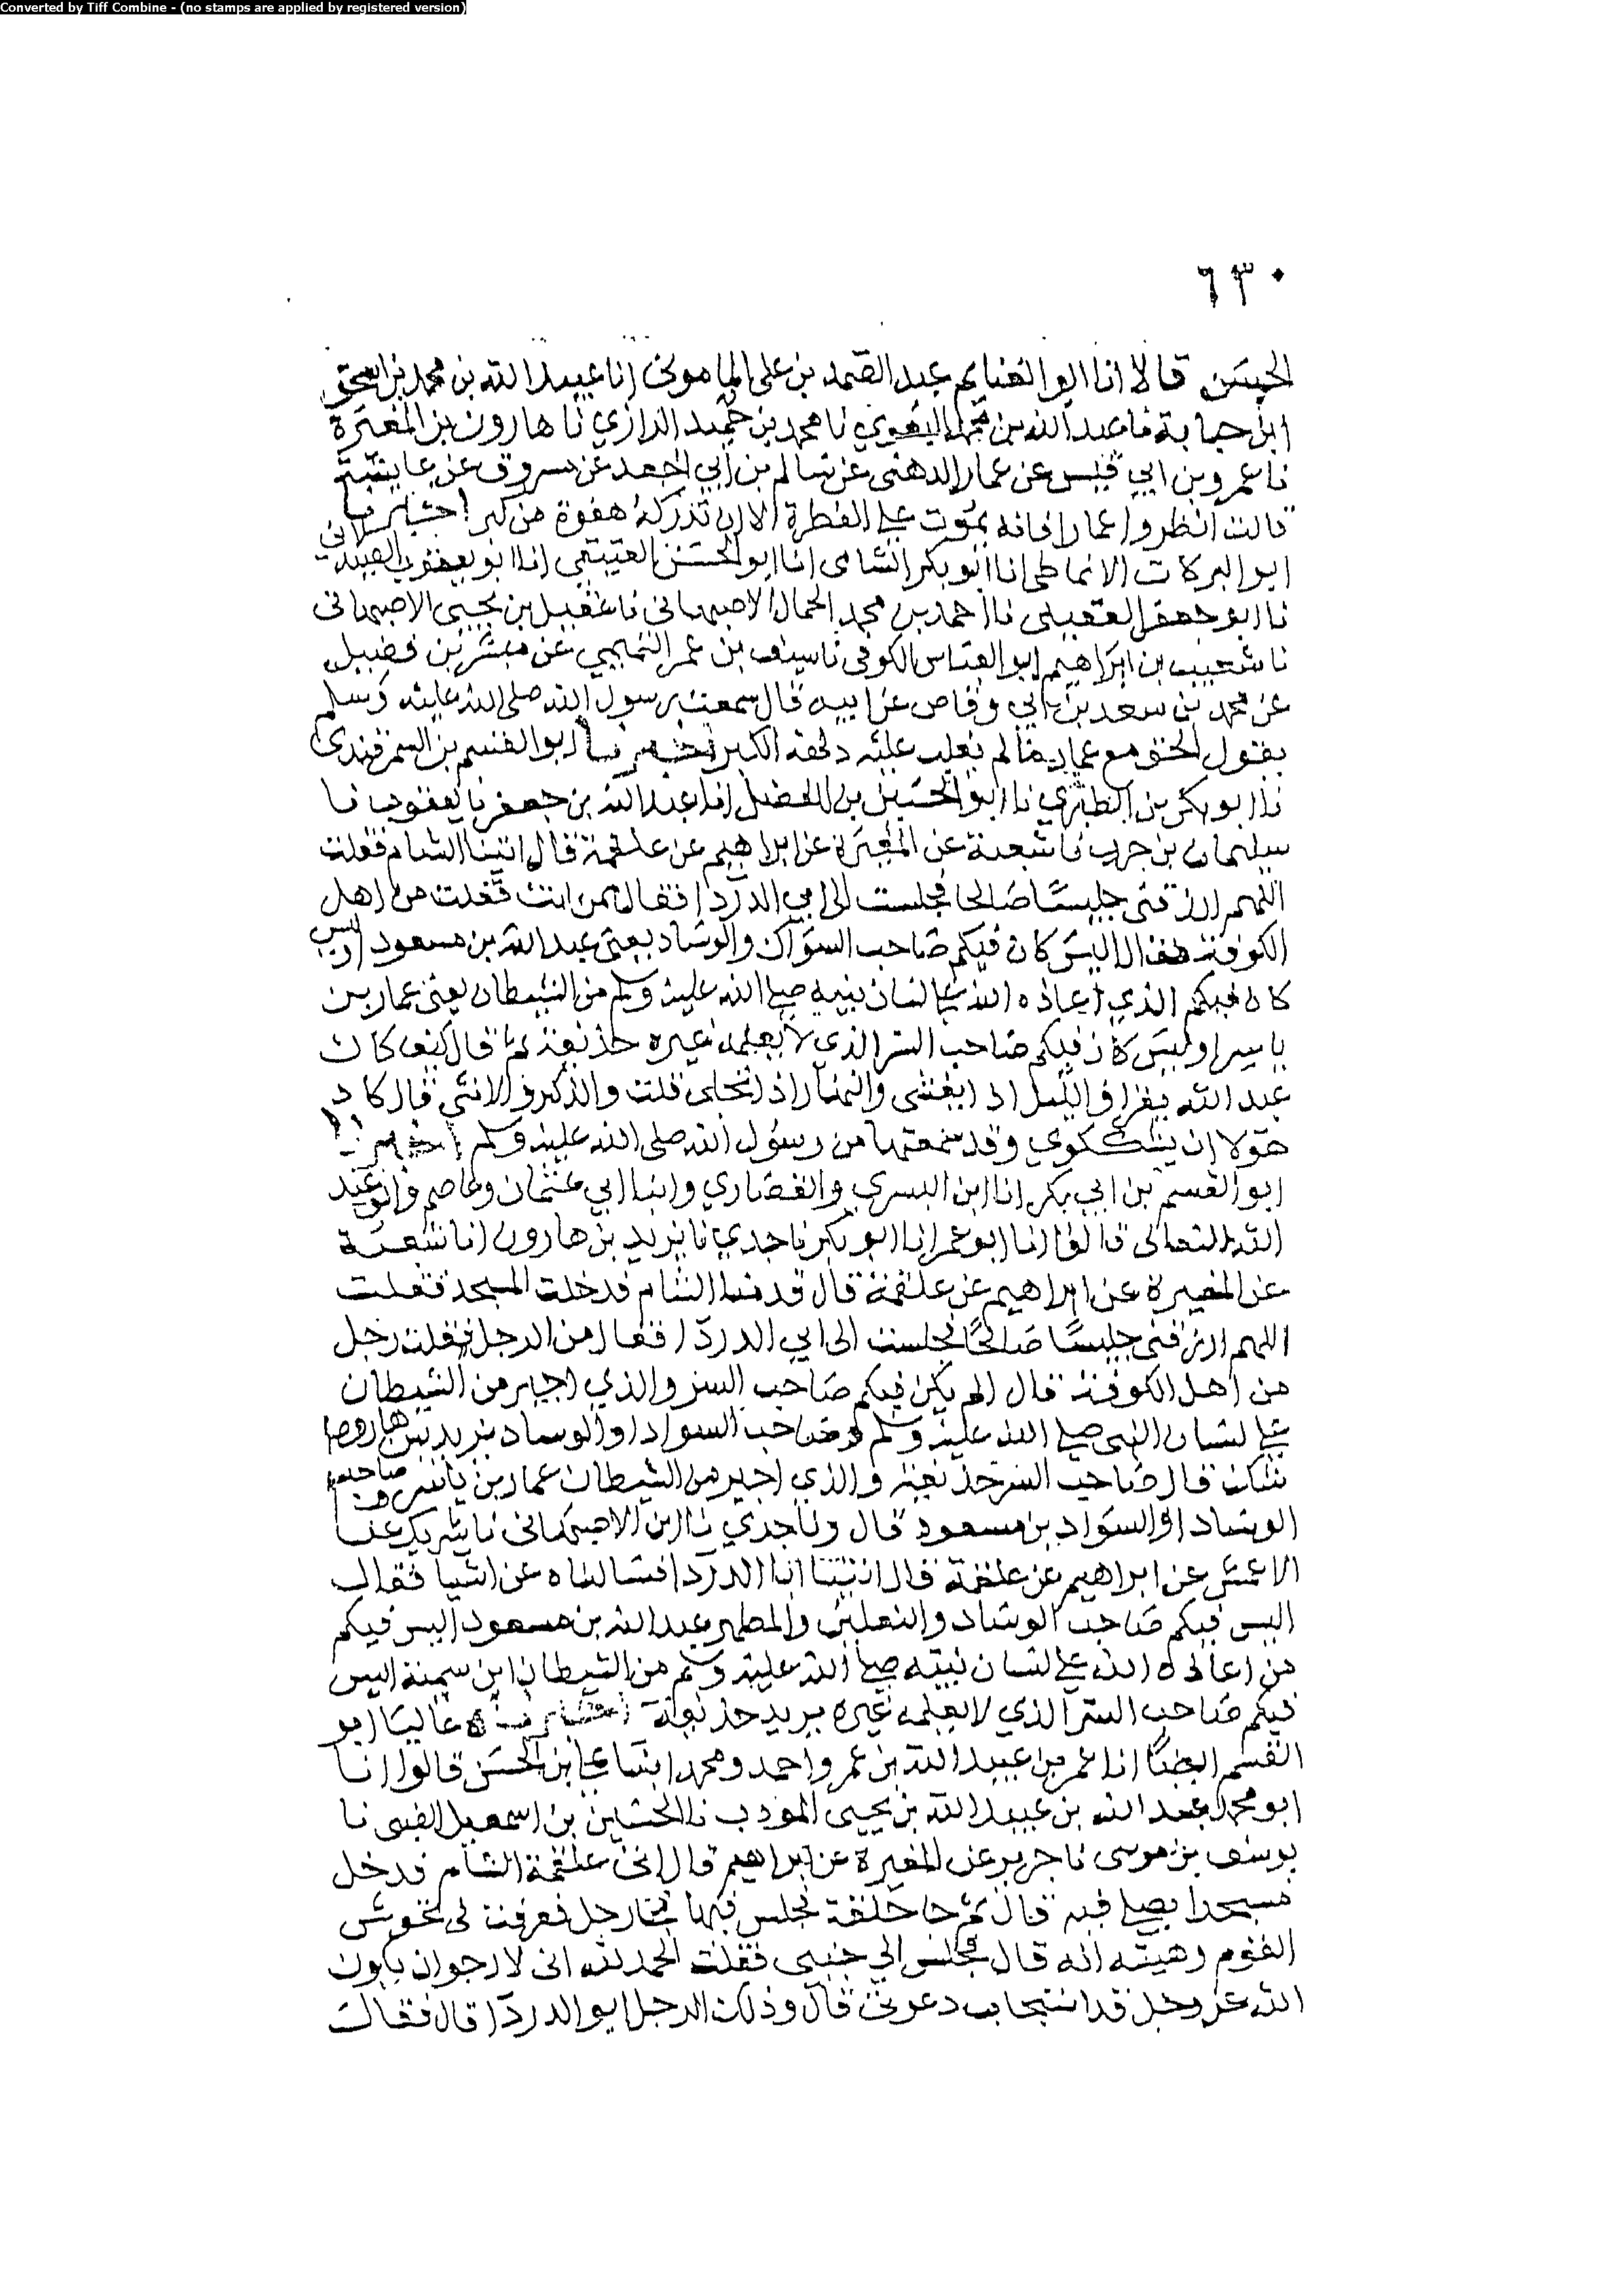 Converted by Tiff Combine - (no stamps are applied by registered version)
٦٣٠
الحسن قالا انا ابو الغنايم عبد الصمد بن علي الماموني انا عبيد الله بن محمد بن اسحق
ابن حبابة نا عبد الله بن محمد البغوي نا محمد بن حميد الرازي نا هارون بن المغيرة
نا عمرو بن ابي قيس عن عمار الدهني عن سالم بن ابي الجعد عن مسروق عن عايشة
قالت انظروا عمارا فانه يموت على الفطرة الا ان تدركه هفوة من كبر اخبرنا
ابو البركات الانماطي انا ابو بكر الشامي انا ابو الحسن العتيقي انا ابو يعقوب الصيدلاني
نا ابو جعفر العقيلي نا احمد بن محمد الجمال الاصبهاني نا عقيل بن يحيى الاصبهاني
نا شعيب بن ابراهيم ابو العباس الكوفي نا سيف بن عمر التميمي عن مبشر بن فضيل
عن محمد بن سعد بن ابي وقاص عن ابيه قال سمعت رسول الله صلى الله عليه وسلم
يقول الحق مع عمار ما لم يغلب عليه دلهة الكبر اخبرنا ابو القسم بن السمرقندي
نا ابو بكر بن الطبري نا ابو الحسين بن الفضل انا عبد الله بن جعفر نا يعقوب نا
سليمان بن حرب نا شعبة عن المغيرة عن ابراهيم عن علقمة قال اتينا الشام فقلت
اللهم ارزقني جليسا صالحا فجلست الى ابي الدردا فقال ممن انت فقلت من اهل
الكوفة فقال اليس كان فيكم صاحب السواك والوساد يعني عبد الله بن مسعود اوليس
كان فيكم الذي اعاذه الله على لسان نبيه صلى الله عليه وسلم من الشيطان يعني عمار بن
ياسر اوليس كان فيكم صاحب السر الذي لا يعلمه غيره حذيفة ثم قال كيف كان
عبد الله يقرا والليل اذا يغشى والنهار اذا تجلى قلت والذكر والانثى قال كاد
هولا ان يشككوني وقد سمعتها من رسول الله صلى الله عليه وسلم اخبرنا
ابو القسم بن ابي بكر انا ابن البسري والقصاري وابنا ابي عثمان وعاصم وابو عبد
الله النعالي قالوا انا ابو عمر انا ابو بكر نا جدي نا يزيد بن هارون انا شعبة
عن المغيرة عن ابراهيم عن علقمة قال قدمنا الشام فدخلت المسجد فقلت
اللهم ارزقني جليسا صالحا فجلست الى ابي الدردا فقال من الرجل فقلت رجل
من اهل الكوفة قال الم يكن فيكم صاحب السر والذي اجير من الشيطان
على لسان النبي صلى الله عليه وسلم وصاحب السواد او الوساد يزيد بن هارون
شك قال صاحب السر حذيفة والذي اجير من الشيطان عمار بن ياسر وصاحب
الوساد او السواد بن مسعود قال ونا جدي نا ابن الاصبهاني نا شريك عن
الاعمش عن ابراهيم عن علقمة قال اتيتنا ابا الدردا فسالناه عن اشيا فقال
اليس فيكم صاحب الوساد والنعلين والمطهر عبد الله بن مسعود اليس فيكم
من اعاذه الله على لسان نبيه صلى الله عليه وسلم من الشيطان ابن سمية اليس
فيكم صاحب السر الذي لا يعلمه غيره يريد حذيفة اخبرناه عاليا ابو
القسم ايضا انا عمر بن عبيد الله بن عمر واحمد ومحمد ابنا علي بن الحسن قالوا انا
ابو محمد عبد الله بن عبيد الله بن يحيى المودب نا الحسين بن اسمعيل الضبي نا
يوسف بن موسى نا جرير عن المغيرة عن ابراهيم قال اتى علقمة الشام فدخل
مسجدا يصلي فيه قال ثم جا حلقة فجلس فيها فجا رجل فعرفت لي تحوش
القوم وهيئته انه قال فجلس الى جنبي فقلت الحمد لله اني لارجو ان يكون
الله عز وجل قد استجاب دعوتي قال وذلك الرجل ابو الدردا قال فقال